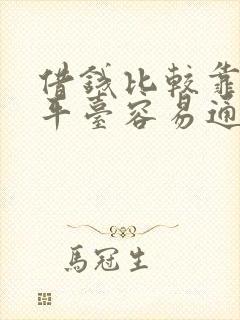 借錢比較靠
平臺容易通
馬冠生